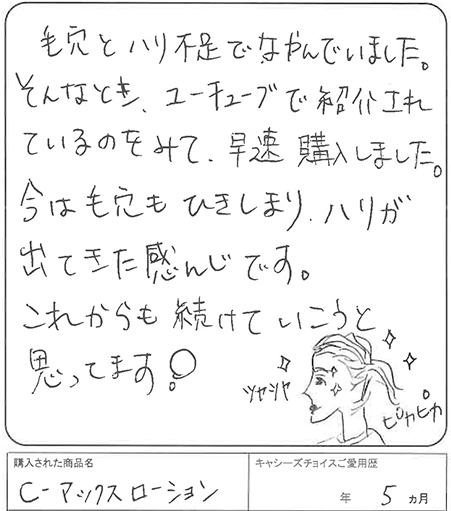 毛穴とハリ不足でなやんでいました。
そんなとき、ユーチューブで紹介され
ているのをみて、早速購入しました。
今は毛穴もひきしまり、ハリが
出てきた感じです。
これからも続けていこうと
思ってます!
ツヤツヤ
ピカピカ
購入された商品名
C-マックスローション
キャシーズチョイスご愛用歴
年 5 ヵ月